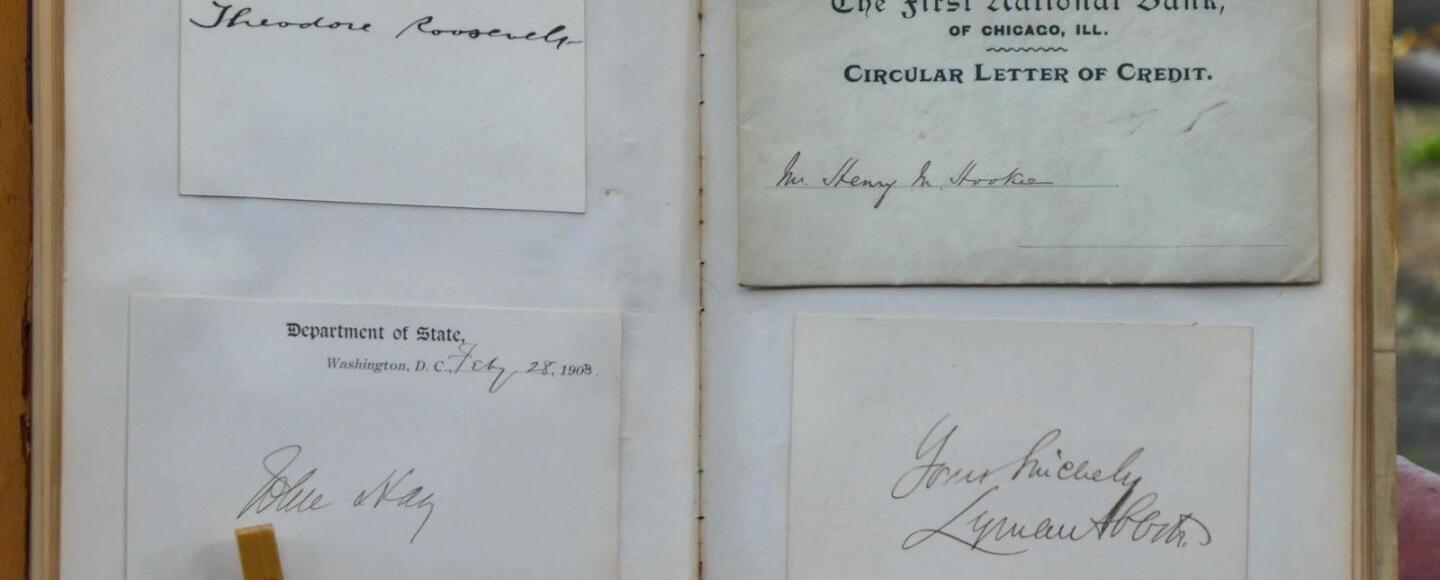 Theodore Roosevelt
The First National Bank,
OF CHICAGO, ILL.
CIRCULAR LETTER OF CREDIT.
Mr. Henry M. Hooker
Department of State,
Washington, D. C., Feby 28, 1903.
John Hay
Yours Sincerely
Lyman Abbott